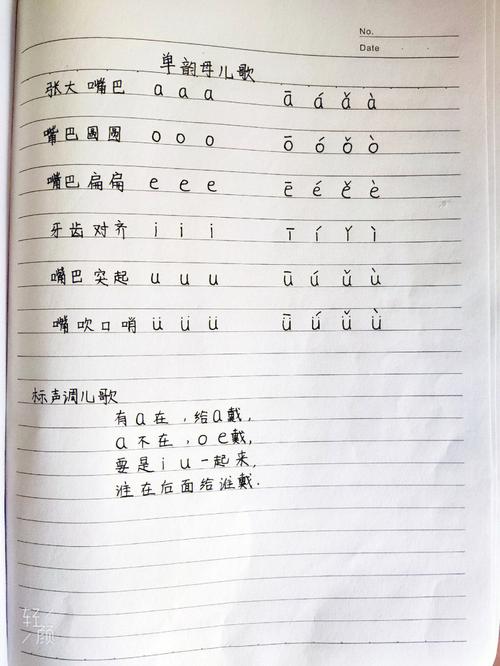 No.
Date
单韵母儿歌
张大嘴巴 a a a ā á ǎ à
嘴巴圆圆 o o o ō ó ǒ ò
嘴巴扁扁 e e e ē é ě è
牙齿对齐 i i i ī í ǐ ì
嘴巴突起 u u u ū ú ǔ ù
嘴吹口哨 ü ü ü ǖ ǘ ǚ ǜ
标声调儿歌
有a在,给a戴,
a不在,o e戴,
要是i u一起来,
谁在后面给谁戴.
轻
颜